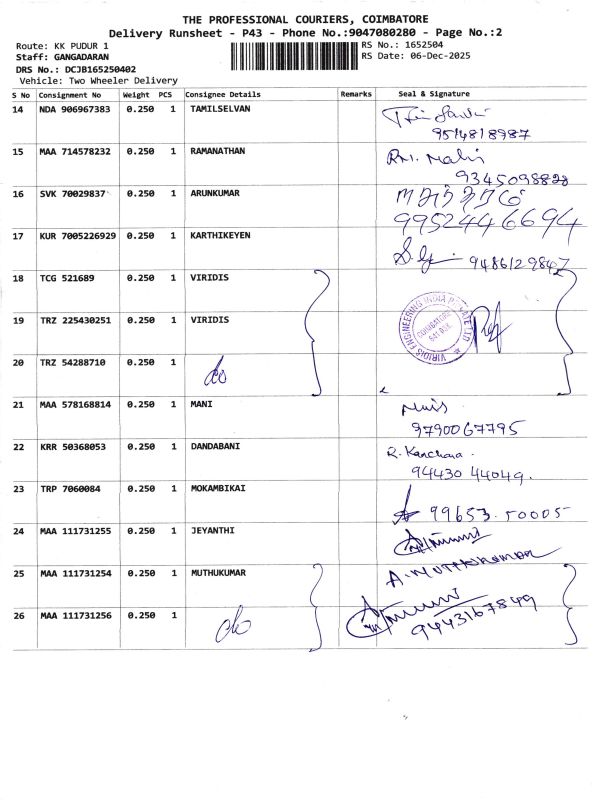 THE PROFESSIONAL COURIERS, COIMBATORE
Delivery Runsheet - P43 - Phone No.:9047080280 - Page No.:2
Route: KK PUDUR 1 RS No.: 1652504
Staff: GANGADARAN RS Date: 06-Dec-2025
DRS No.: DCJB165250402
Vehicle: Two Wheeler Delivery
S No Consignment No Weight PCS Consignee Details Remarks Seal & Signature
14 NDA 906967383 0.250 1 TAMILSELVAN
9514818987
15 MAA 714578232 0.250 1 RAMANATHAN
9345098828
16 SVK 70029837 0.250 1 ARUNKUMAR
9952446694
17 KUR 7005226929 0.250 1 KARTHIKEYEN
9486129847
18 TCG 521689 0.250 1 VIRIDIS
VIRIDIS ENGINEERING INDIA PRIVATE LTD
COIMBATORE
19 TRZ 225430251 0.250 1 VIRIDIS
20 TRZ 54288710 0.250 1 do
21 MAA 578168814 0.250 1 MANI
9790067795
22 KRR 50368053 0.250 1 DANDABANI R. Kanchana
94430 44049.
23 TRP 7060084 0.250 1 MOKAMBIKAI
99653 50005
24 MAA 111731255 0.250 1 JEYANTHI
25 MAA 111731254 0.250 1 MUTHUKUMAR A. MUTHUKUMAR
26 MAA 111731256 0.250 1 do
9443167849